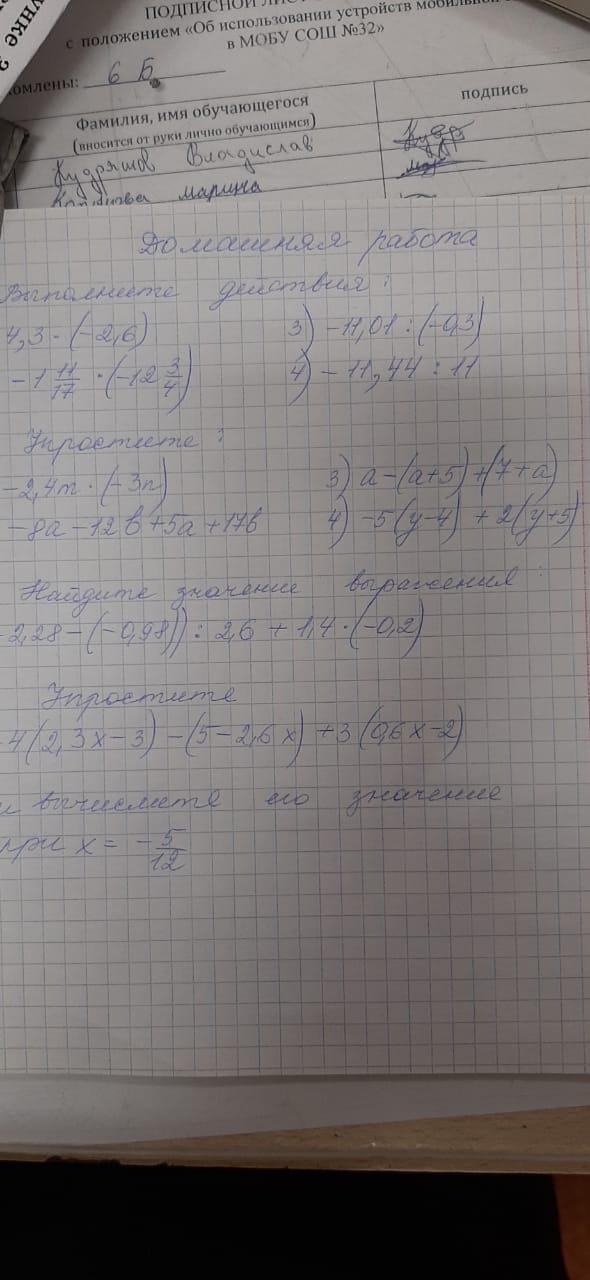 нке
ПОДПИСНОЙ
с положением «Об использовании устройств мобильной
в МОБУ СОШ №32»
омлены: 6 Б.
Фамилия, имя обучающегося
(вносится от руки лично обучающимся)
подпись
Кудряшов Владислав
марина
Домашняя работа
Выполните действия:
4,3 · (-2,6)
3) -11,01 : (-0,3)
-1 11/17 · (-12 3/4)
4) -11,44 : 11
Упростите:
-2,4m · (-3n)
3) a-(a+5)+(7+a)
-8a-12b+5a+17b
4) -5(y-4)+2(y+5)
Найдите значение выражения:
2,28-(-0,98)):2,6+1,4·(-0,2)
Упростите
-4(2,3x-3)-(5-2,6x)+3(0,6x-2)
и вычислите его значение
при x = -5/12